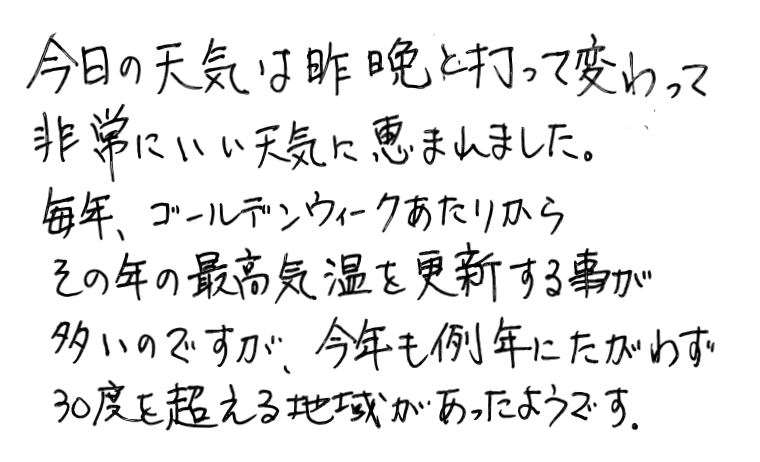 今日の天気は昨晩と打って変わって
非常にいい天気に恵まれました。
毎年、ゴールデンウィークあたりから
その年の最高気温を更新する事が
多いのですが、今年も例年にたがわず
30度を超える地域があったようです.